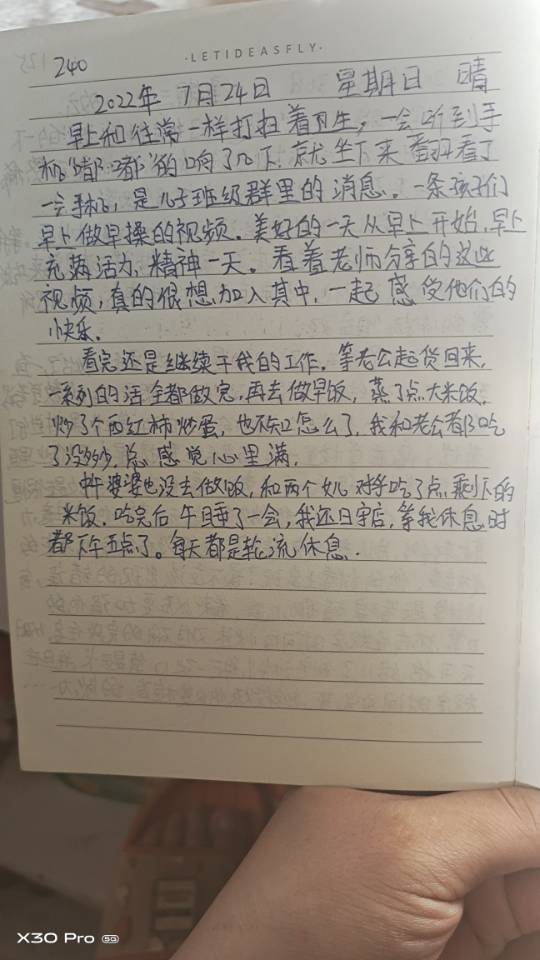 240
·LETIDEASFLY·
2022年 7月24日 星期日 晴
早上和往常一样打扫着卫生，一会听到手
机“嘟嘟”的响了几下，就坐下来翻看了
一会手机，是儿子班级群里的消息。一条孩子们
早上做早操的视频。美好的一天从早上开始，早上
充满活力，精神一天。看着老师分享的这些
视频，真的很想加入其中，一起感受他们的
快乐。
看完还是继续干我的工作。等老公起货回来，
一系列的活全都做完，再去做早饭，蒸了点大米饭，
炒了个西红柿炒蛋，也不知怎么了，我和老公都吃
了没多少，总感觉心里满，
中午婆婆也没去做饭，和两个女儿对乎吃了点剩下的
米饭。吃完后午睡了一会，我还守店，等我休息时
都下午五点了。每天都是轮流休息.
X30 Pro 5G